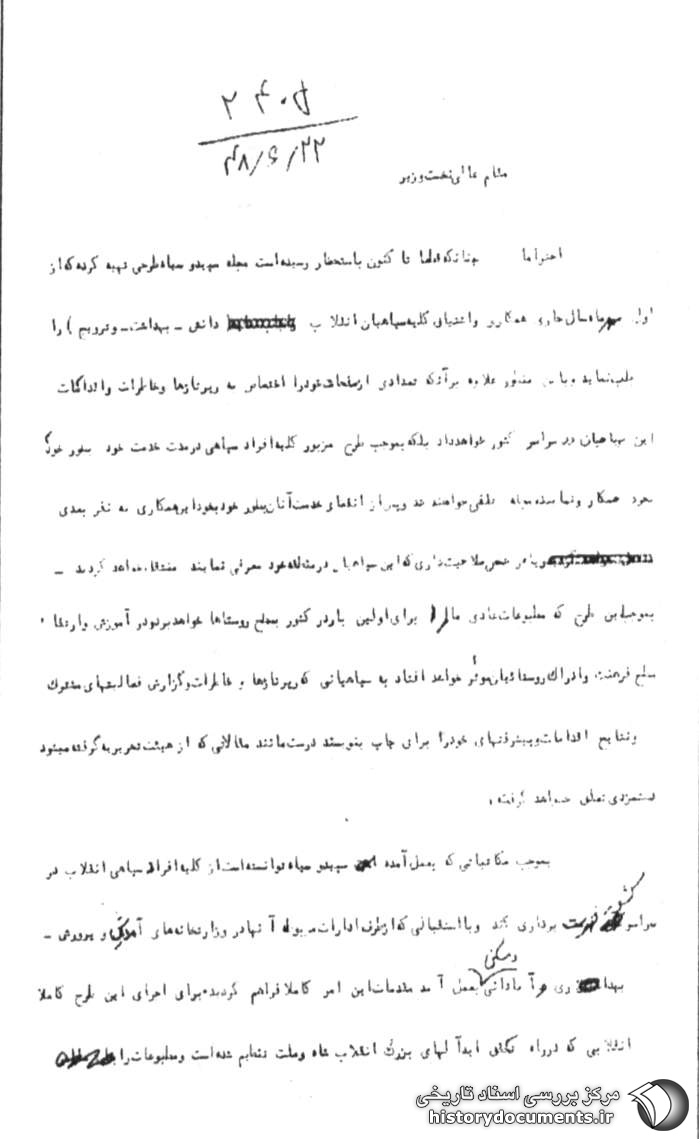 ۲۴۰۵
۴۸/۶/۲۲
مقام عالی نخست وزیر
احتراما چنانکه قبلا تا کنون باستحضار رسیده است مجله سپید و سیاه طرحی تهیه کرده که از
اول مهرماه سال جاری همکاری و اشتیاق کلیه سپاهیان انقلاب دانش - بهداشت - و ترویج ) را
جلب نماید و باین منظور علاوه بر آنکه تعدادی از صفحات خود را اختصاص به رپرتاژها و خاطرات و
این سپاهیان در سراسر کشور خواهد داد بلکه بموجب طرح مزبور کلیه افراد سپاهی در مدت خدمت خود بطور خودکار
همکار و نماینده مجله تلقی خواهند شد و پس از انقضای خدمت آنان بطور خودبخود این همکاری به نفر بعدی
و یا هر شخص صلاحیت داری که این سپاهیان در منطقه خود معرفی نمایند منتقل خواهد گردید -
بموجب این طرح که مطبوعات عادی مالرا برای اولین بار در کشور بسطح روستاها خواهد برد و در آموزش و ارتقا
سطح فرهنگ و ادراک روستائیان موثر خواهد افتاد به سپاهیانی که رپرتاژها و خاطرات و گزارش فعالیتهای
و نتایج اقدامات و پیشرفتهای خود را برای چاپ بنویسند درست مانند مقالاتی که از هیئت تحریریه گرفته میشود
دستمزدی تعلق خواهد گرفت .
بموجب مکاتباتی که بعمل آمده سپید و سیاه توانسته است از کلیه افراد سپاهی انقلاب در
سراسر کشور فهرست برداری کند و با استقبالی که از طرف ادارات مربوطه آنها در وزارتخانه های آموزش و پرورش -
بهداری و آبادانی و مسکن بعمل آمد مقدمات این امر کاملا فراهم گردید برای اجرای این طرح کاملا
انقلابی که در راه ایدآلهای بزرگ انقلاب شاه و ملت تنظیم شده است و مطبوعات را
مرکز بررسی اسناد تاریخی
historydocuments.ir